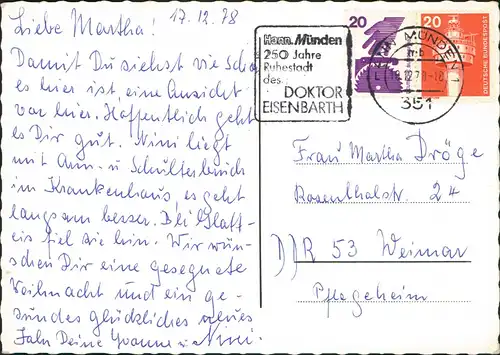 Liebe Martha! 17.12.78
Damit Du siehst wie schön
es hier ist eine Ansicht
von hier. Hoffentlich geht
es Dir gut. Nini liegt
mit Arm- u Schulterbruch
im Krankenhaus, es geht
langsam besser. Bei Glatt-
eis fiel sie hin. Wir wün-
schen Dir eine gesegnete
Weihnacht und ein ge-
sundes glückliches neues
Jahr Deine Yvonne u Nini.
Hann. Münden
250 Jahre
Ruhestadt
des
DOKTOR
EISENBARTH
20
20
DEUTSCHE BUNDESPOST
MÜNDEN 1
351
Frau Martha Dröge
Rosenthalstr. 24
DDR 53 Weimar
Pflegeheim